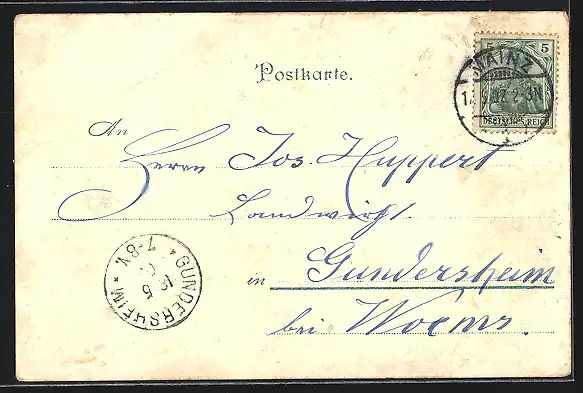 Postkarte.
5 5
DEUTSCHES REICH
MAINZ
2-3N
An
Herrn Jos. Huppert
Landwirt
in Gundersheim
bei Worms.
* GUNDERSHEIM *
7-8V.